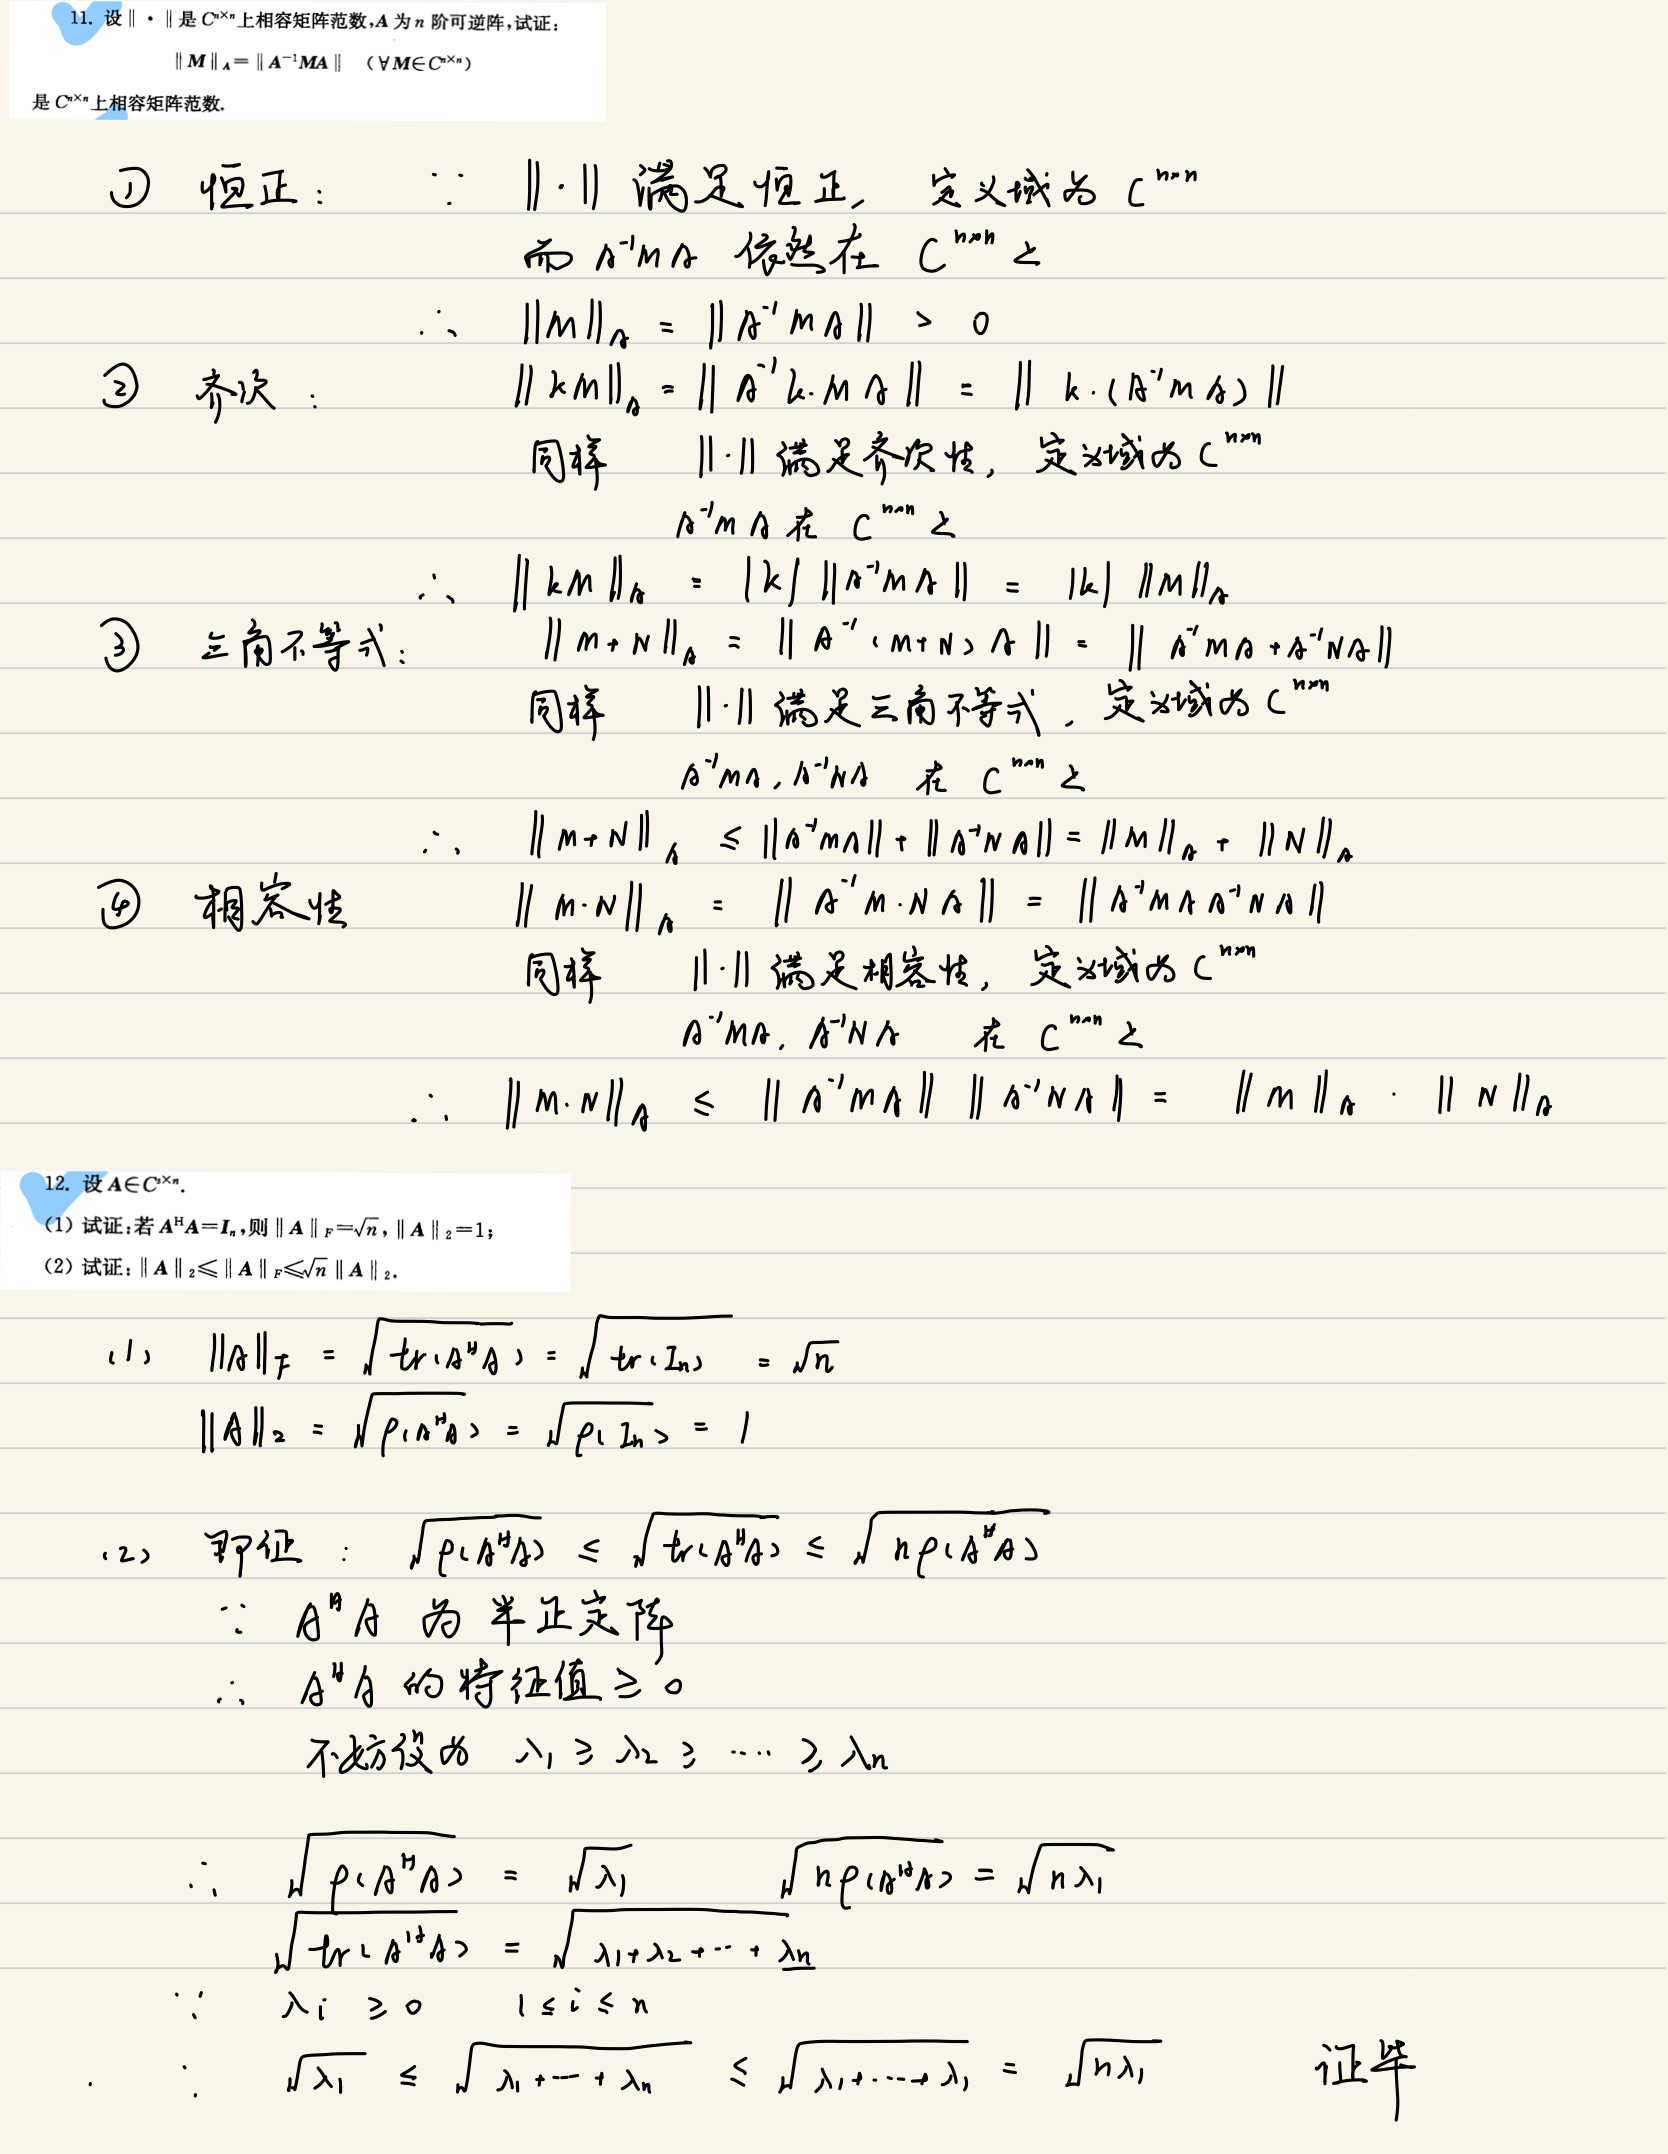 11. 设‖·‖是 Cⁿˣⁿ上相容矩阵范数,A 为 n 阶可逆阵,试证:
‖M‖_A=‖A⁻¹MA‖ (∀M∈Cⁿˣⁿ)
是 Cⁿˣⁿ上相容矩阵范数.
① 恒正: ∵ ‖·‖ 满足恒正, 定义域为 Cⁿˣⁿ
而 A⁻¹MA 依然在 Cⁿˣⁿ上
∴ ‖M‖_A = ‖A⁻¹MA‖ > 0
② 齐次: ‖kM‖_A = ‖A⁻¹k·MA‖ = ‖k·(A⁻¹MA)‖
同样 ‖·‖ 满足齐次性, 定义域为 Cⁿˣⁿ
A⁻¹MA 在 Cⁿˣⁿ 上
∴ ‖kM‖_A = |k| ‖A⁻¹MA‖ = |k| ‖M‖_A
③ 三角不等式: ‖M+N‖_A = ‖A⁻¹(M+N)A‖ = ‖A⁻¹MA+A⁻¹NA‖
同样 ‖·‖ 满足三角不等式, 定义域为 Cⁿˣⁿ
A⁻¹MA, A⁻¹NA 在 Cⁿˣⁿ 上
∴ ‖M+N‖_A ≤ ‖A⁻¹MA‖+‖A⁻¹NA‖ = ‖M‖_A + ‖N‖_A
④ 相容性 ‖M·N‖_A = ‖A⁻¹M·NA‖ = ‖A⁻¹MAA⁻¹NA‖
同样 ‖·‖ 满足相容性, 定义域为 Cⁿˣⁿ
A⁻¹MA, A⁻¹NA 在 Cⁿˣⁿ 上
∴ ‖M·N‖_A ≤ ‖A⁻¹MA‖ ‖A⁻¹NA‖ = ‖M‖_A · ‖N‖_A
12. 设 A∈Cˢˣⁿ.
(1) 试证:若 AᴴA=Iₙ,则‖A‖_F=√n,‖A‖₂=1;
(2) 试证:‖A‖₂≤‖A‖_F≤√n‖A‖₂.
(1) ‖A‖_F = √tr(AᴴA) = √tr(Iₙ) = √n
‖A‖₂ = √ρ(AᴴA) = √ρ(Iₙ) = 1
(2) 即证: √ρ(AᴴA) ≤ √tr(AᴴA) ≤ √nρ(AᴴA)
∵ AᴴA 为半正定阵
∴ AᴴA 的特征值 ≥ 0
不妨设为 λ₁ ≥ λ₂ ≥ ···· ≥ λₙ
∴ √ρ(AᴴA) = √λ₁ √nρ(AᴴA) = √nλ₁
√tr(AᴴA) = √λ₁+λ₂+···+λₙ
∵ λi ≥ 0 1 ≤ i ≤ n
∴ √λ₁ ≤ √λ₁+···+λₙ ≤ √λ₁+····+λ₁ = √nλ₁ 证毕